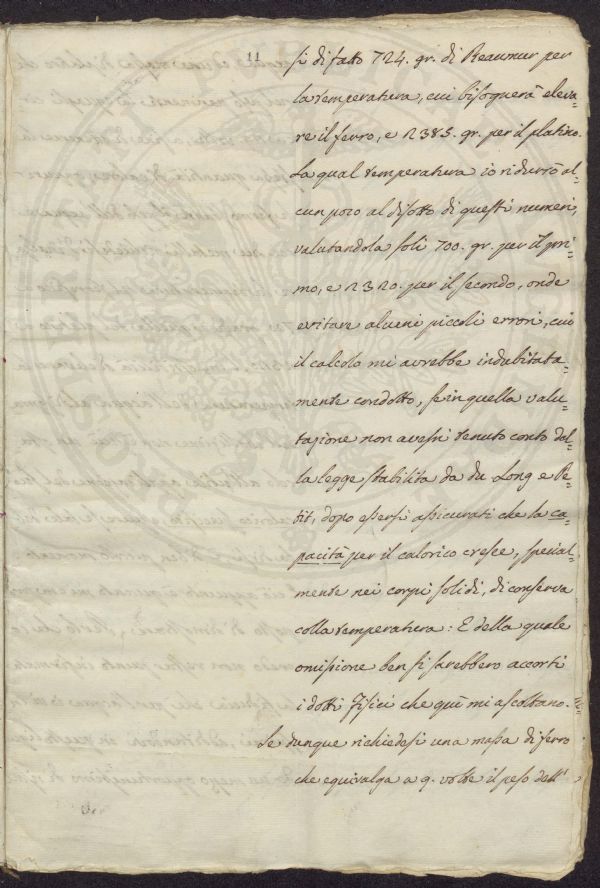 11
si di fatto 724. gr. di Reaumur per
la temperatura, cui bisognerà eleva=
re il ferro, e 2385. gr. per il platino.
La qual temperatura io ridurrò al=
cun poco al disotto di questi numeri,
valutandola soli 700. gr. per il pri=
mo, e 2320. per il secondo, onde
evitare alcuni piccoli errori, cui
il calcolo mi avrebbe indubitata=
mente condotto, se in quella valu=
tazione non avessi tenuto conto del=
la legge stabilita da du Long e Pe=
tit, dopo essersi assicurati che la ca=
pacità per il calorico cresce, special=
mente nei corpi solidi, di conserva
colla temperatura: E della quale
omissione ben si sarebbero accorti
i dotti Fisici che quì mi ascoltano.
Se dunque richiedesi una massa di ferro
che equivalga a 9. volte il peso dell'